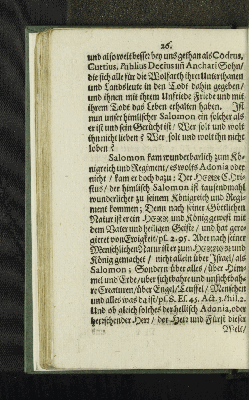 26.
und also weit besser bey uns gethan als Codrus,
Curtius, Publius Decius und Anchari Sohn/
die sich alle für die Wolfarth ihrer Unterthanen
und Landsleute in den Todt dahin gegeben/
und ihnen mit ihrem Unfriede Friede und mit
ihrem Tode das Leben erhalten haben. Ist
nun unser himlischer Salomon ein solcher als
er ist und sein Gerücht ist/ Wer solt und wolt
ihn nicht lieben? Wer solt und wolt ihn nicht
loben?
Salomon kam wunderbarlich zum Kö-
nigreich und Regiment/ es wolts Adonia oder
nicht/ kam er doch dazu: Der HErre Chri-
stus/ der himlisch Salomon ist tausendmahl
wunderlicher zu seinem Königreich und Regi-
ment kommen; Denn nach seiner Göttlichen
Natur ist er ein HErre und König gewest mit
dem Vater und heiligen Geiste/ und hat gere-
gieret von Ewigkeit/ pl. 2. 95. Aber nach seiner
Menschlichen Natur ist er zum HErren und
König gemachet/ nicht allein über Israel/ als
Salomon; Sondern über alles/ über Him-
mel und Erde/ uber sichtbahre und unsichtbah-
re Creaturen/ über Engel/ Teuffel/ Menschen
und alles was da ist/ pl. 8. Es. 45. Act. 3. Phil. 2.
Und ob gleich solches der hellisch Adonia, oder
herrschender Herr/ der Herr und Fürst dieser
Welt/